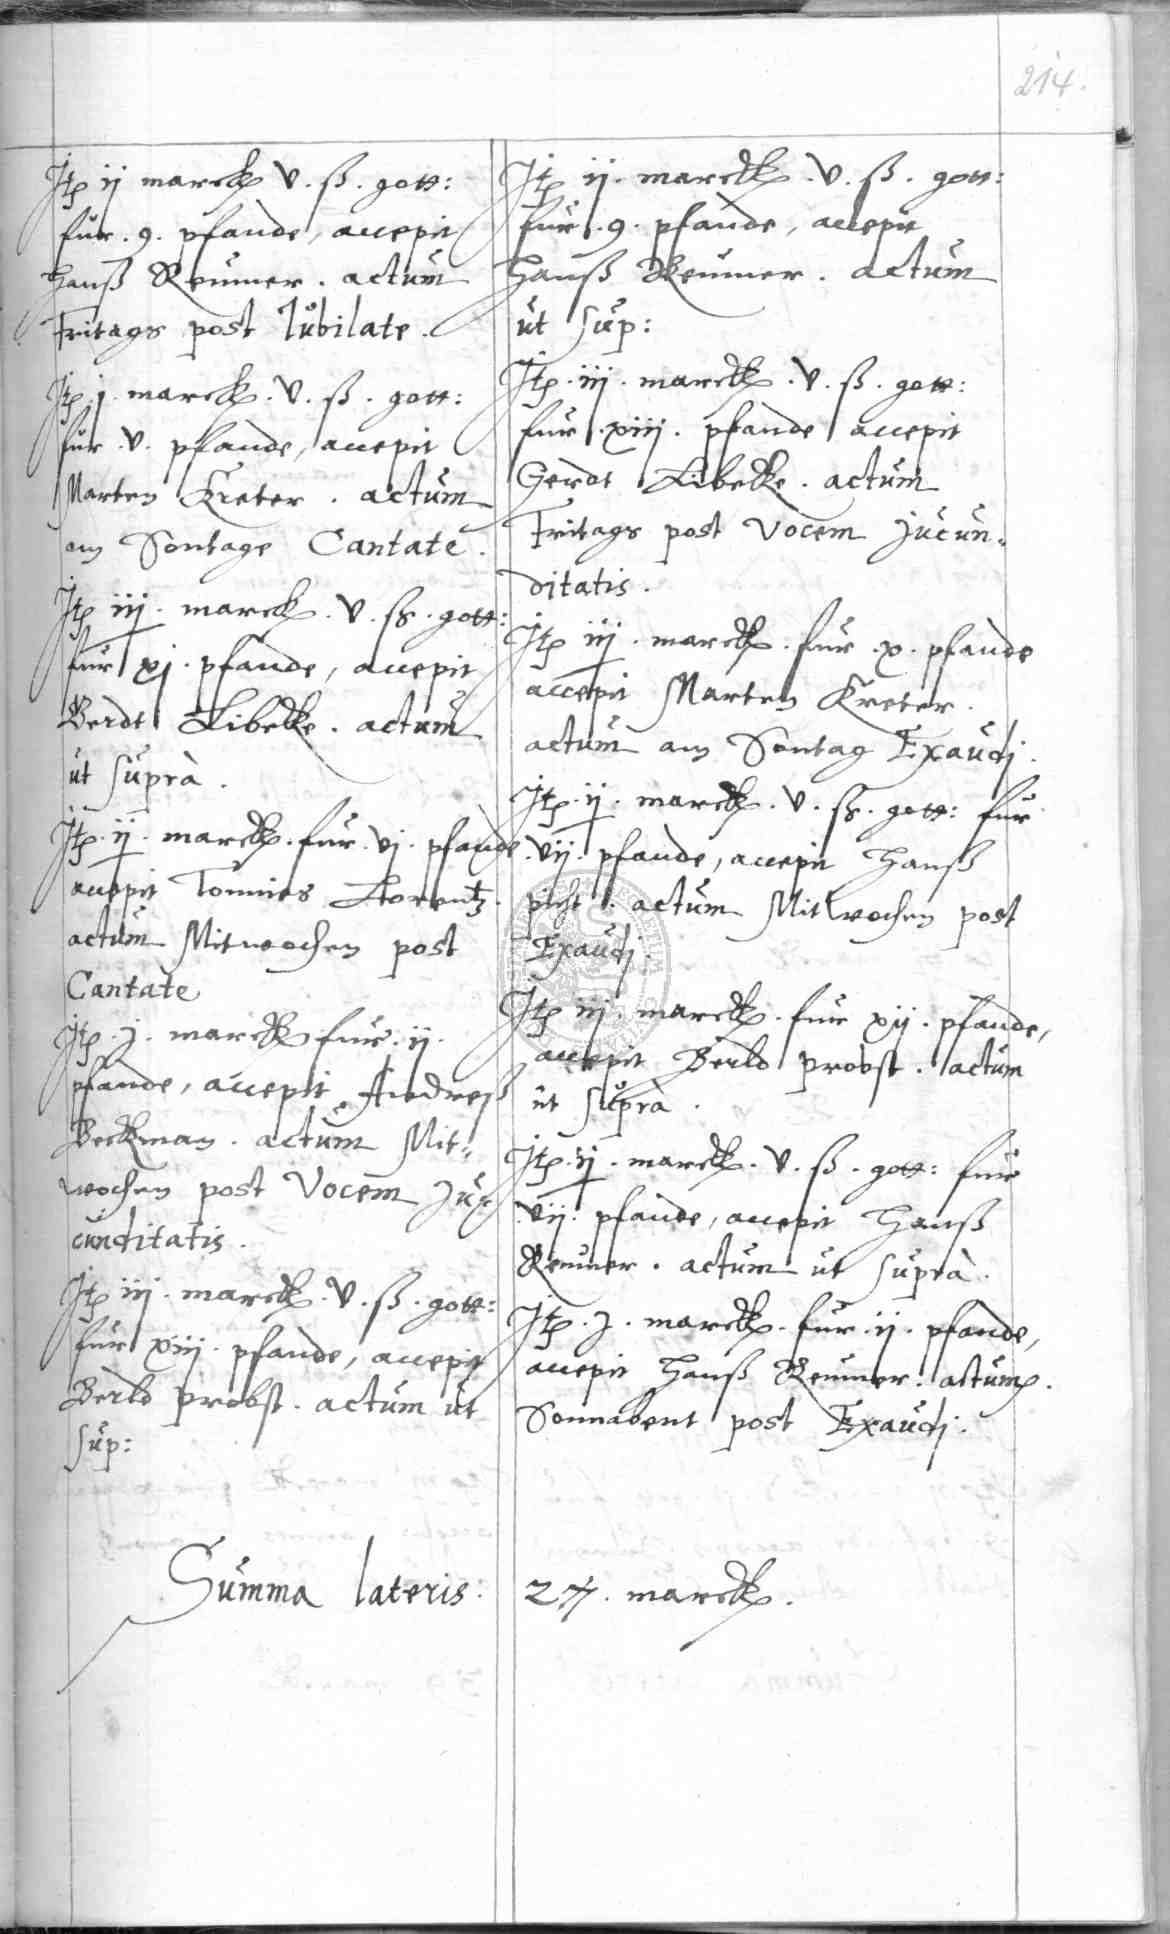 214.
Itꝑ ij marckꝭ v. ß. gott:
fur. 9. pfande, accepit
Hanß Reumer. actum
Fritags post Iubilate.
Itꝑ. j. marckꝭ. v. ß. gott:
fur. v. pfande, accepit
Marten Kreter. actum
am Sontage Cantate.
Itꝑ iij. marckꝭ. v. ss. gott:
fur xj. pfande, accepit
Gerdt Libecke. actum
ut supra.
Itꝑ. ij. marckꝭ. fur. vj. pfande
accepit Tonnies Lorentz.
actum Mitwochen post
Cantate
Itꝑ. j. marckꝭ fur. ij.
pfande, accepit Andreß
Beckman. actum Mit-
wochen post Vocem Ju-
cunditatis.
Itꝑ iij. marckꝭ. v. ß. gott:
fur xiij. pfande, accepit
Berld probst. actum ut
sup:
Itꝑ ij. marckꝭ. v. ß. gott:
fur. 9. pfande, accepit
Hanß Reumer. actum
ut sup:
Itꝑ. iij. marckꝭ. v. ß. gott:
fur. xiij. pfande accepit
Gerdt Libecke. actum
Fritags post Vocem Jucun-
ditatis.
Itꝑ iij. marckꝭ. fur. x. pfande
accepit Marten Kreter.
actum am Sontag Exaudj.
Itꝑ. ij. marckꝭ. v. ss. gott: fur
vij. pfande, accepit Hanß
picht. actum Mitwochen post
Exaudj.
Itꝑ iij. marckꝭ. fur xij. pfande,
accepit Berld probst. actum
ut supra.
Itꝑ. ij. marckꝭ. v. ß. gott: fur
vij. pfande, accepit Hanß
Reumer. actum ut supra.
Itꝑ. j. marckꝭ. fur. ij. pfande,
accepit Hanß Reumer. actum.
Sonnabent post Exaudj.
Summa lateris. 27. marckꝭ.